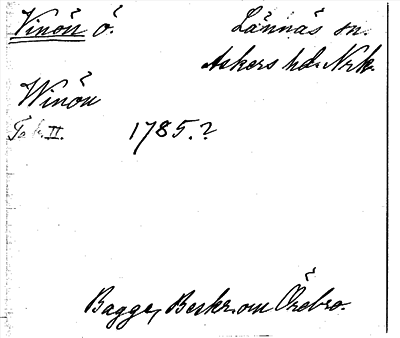 Vinön ö.
Lännäs sn.
Askers hd. Nrk.
Winön
Tab. II. 1785.?
Bagge, Beskr. om Örebro.